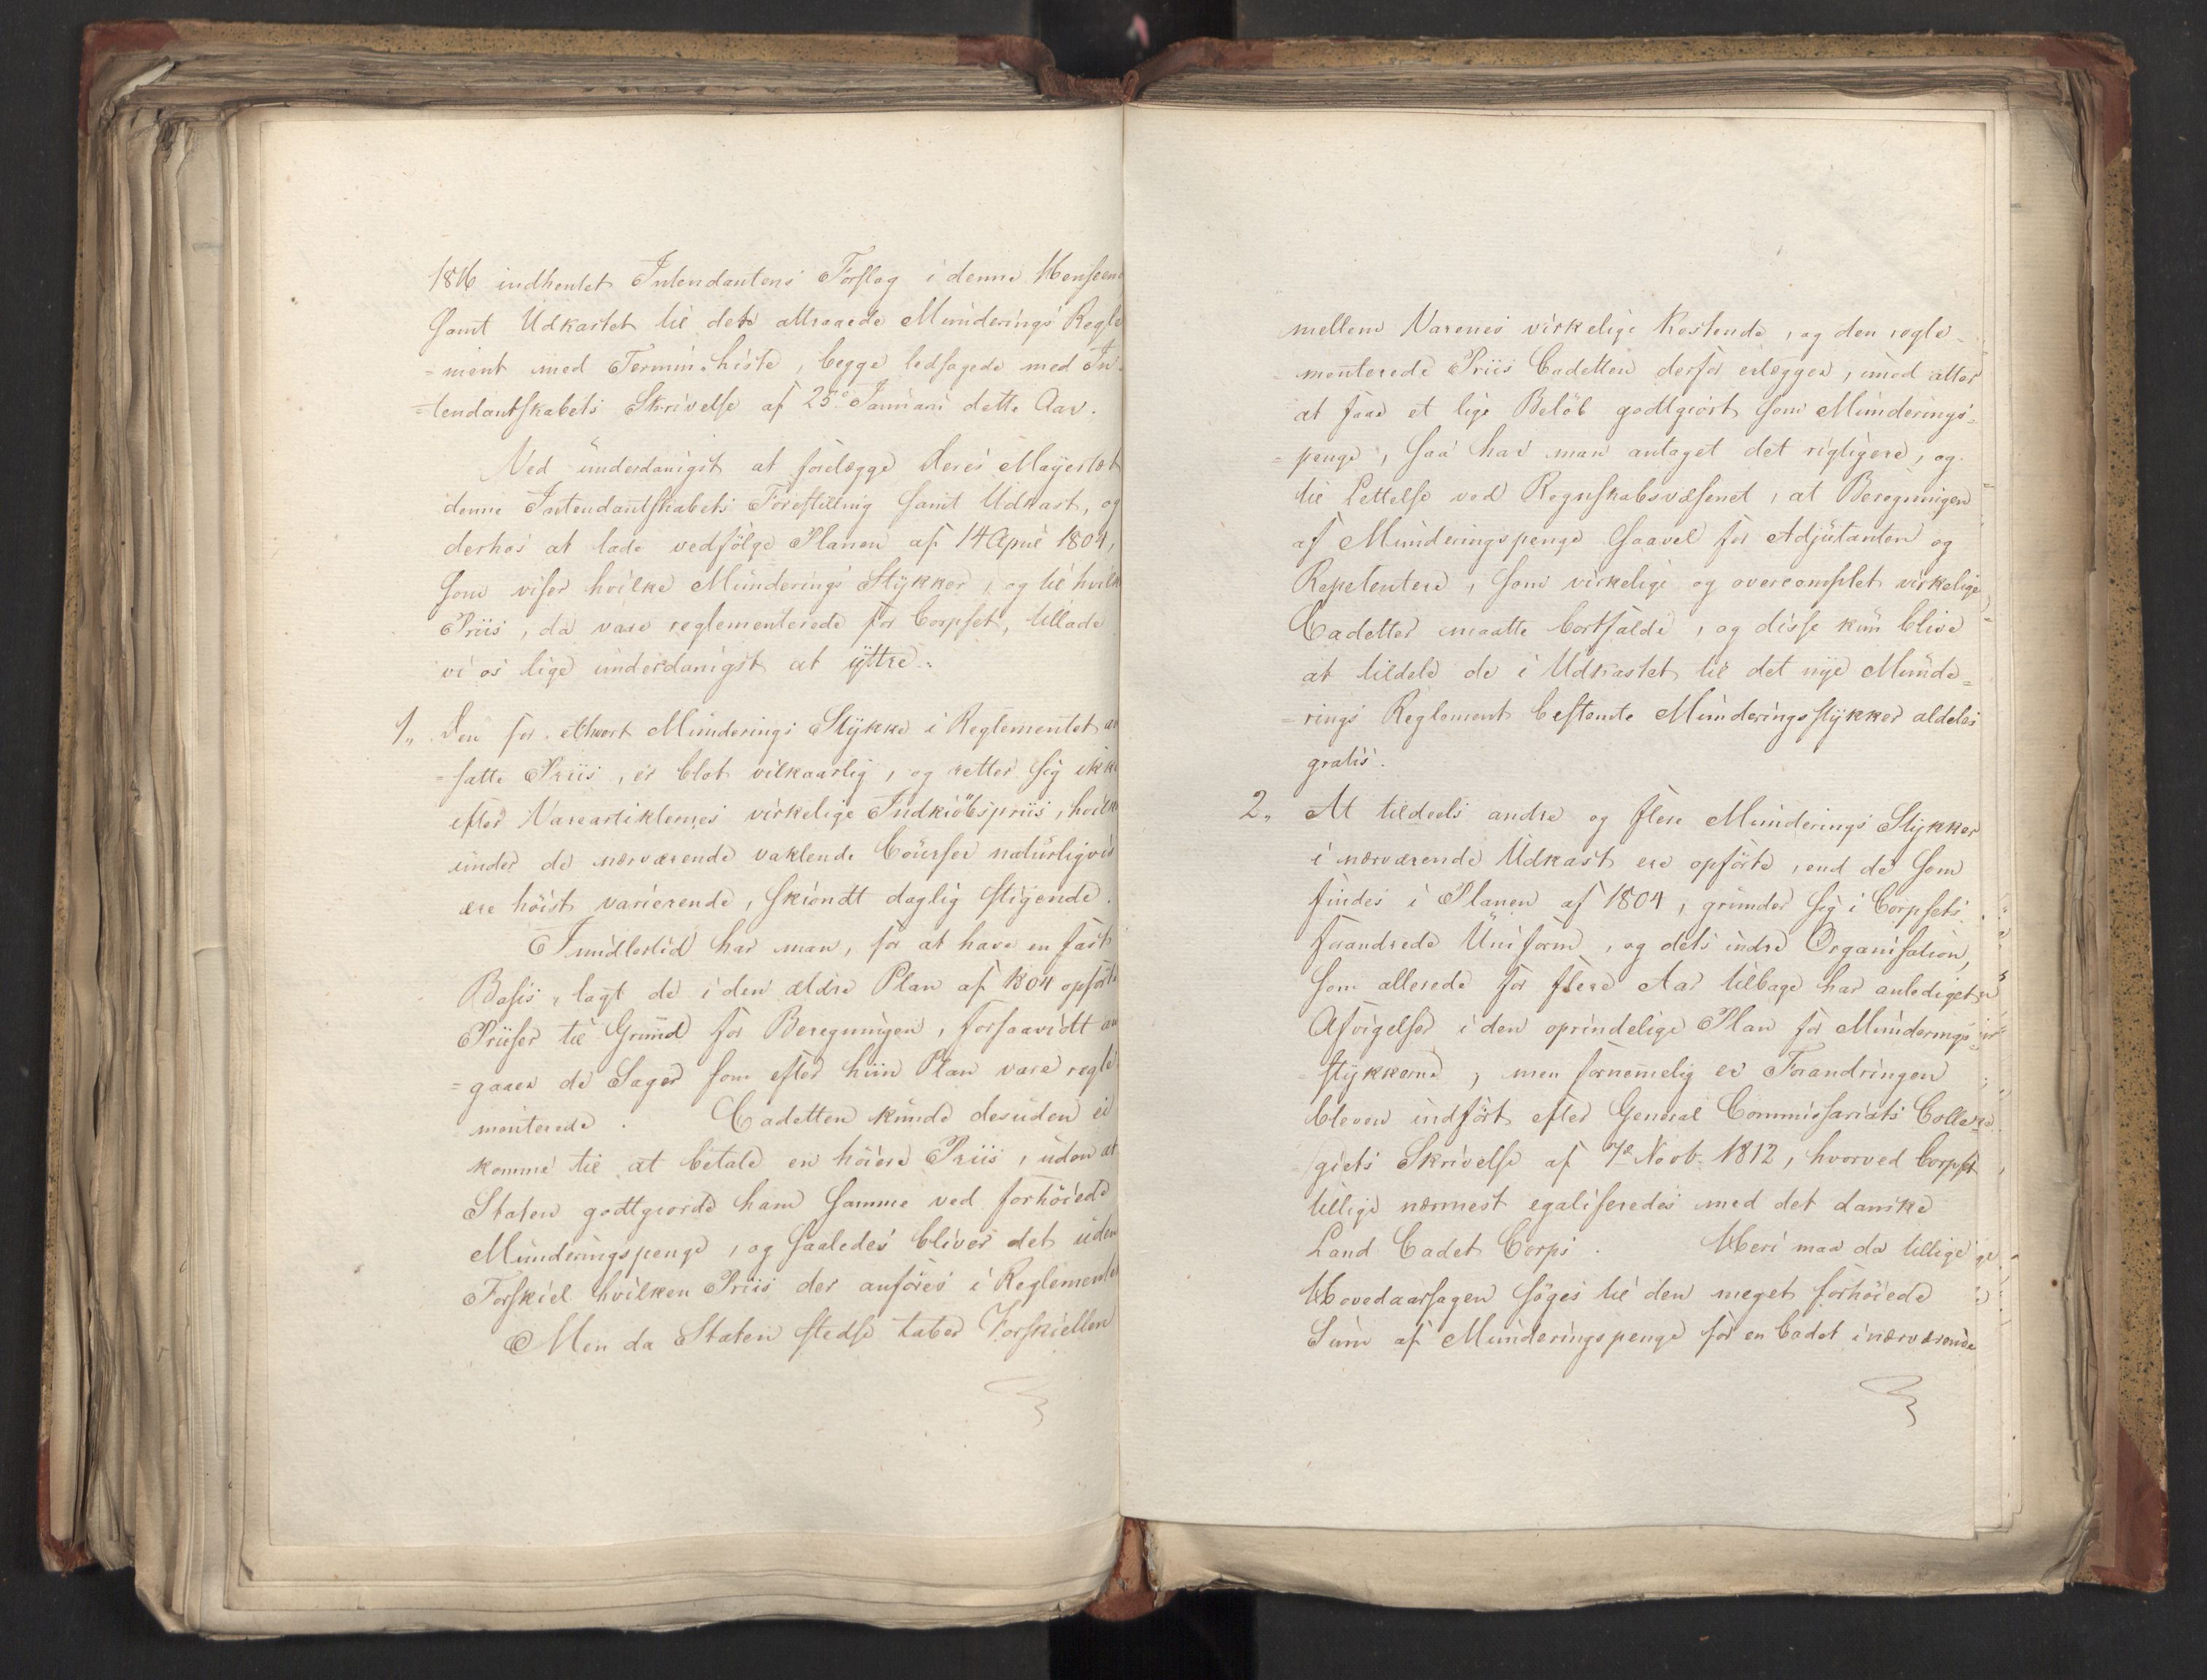 1816 indhentet Intendantens Forslag i denne Henseende
samt Udkastet til det attraaede Munderings Regle
=ment med Termin-Liste, begge ledsagede med In-
=tendantskabets Skrivelse af 25de Januari dette Aar.
Ved underdanigst at forelægge Deres Mayestæt
denne Intendantskabets Forestilling samt Udkast, og
derhos at lade vedfölge Planen af 14 April 1804,
som viser hvilke Munderings Stykker, og til hvilk
Priis, da vare reglementerede for Corpset, tillade
vi os lige underdanigst at yttre:
1„ Den for ethvert Munderings Stykke i Reglementet an
=satte Priis, er blot vilkaarlig, og retter sig ikke
efter Vareartiklernes virkelige Indkiöbspriis, hvilke
under de nærværende vaklende Courser naturligviis
ere höist varierende, skiöndt daglig stigende.
Imidlertid har man, for at have en fast
Basis, lagt de i den ældre Plan af 1804 opförte
Priiser til Grund for Beregningen, forsaavidt an
=gaaer de Sager som efter hiin Plan vare regle
=menterede. Cadetten kunde desuden ei
komme til at betale en höiere Priis, uden at
Staten godtgiorde ham samme ved forhöiede
Munderingspenge, og saaledes bliver det uden
Forskiel hvilken Priis der anföres i Reglementet
Men da Staten stedse taber Forskiellen
mellem Varenes virkelige Kostende, og den regle=
=menterede Priis Cadetten derfor erlægger, imod atter
at faae et lige Belöb godtgiort som Munderings=
=penge, saa har man antaget det rigtigere, og
til Lettelse ved Regnskabsvæsenet, at Beregningen
af Munderingspenge saavel for Adjutanten og
Repetentere, som virkelige og overcomplet virkelige
Cadetter maatte bortfalde, og disse kun blive
at tildele de i Udkastet til det nye Munde=
=rings Reglement bestemte Munderingsstykker aldeles
gratis.
2„ At tildeels andre og flere Munderings Stykker
i nærværende Udkast ere opförte, end de som
findes i Planen af 1804, grunder sig i Corpsets
forandrede Uniform, og dets indre Organisation,
som allerede for flere Aar tilbage har anlediget
Afvigelser i den oprindelige Plan for Munderings=
=stykkerne, men fornemelig er Forandringen
bleven indfört efter General Commissariats Colle=
=giets Skrivelse af 7de Novb. 1812, hvorved Corpset
tillige nærmest egaliseredes med det danske
Land Cadet Corps. Heri maa da tillige
Hovedaarsagen söges til den meget forhöiede
Sum af Munderingspenge for en Cadet i nærværende